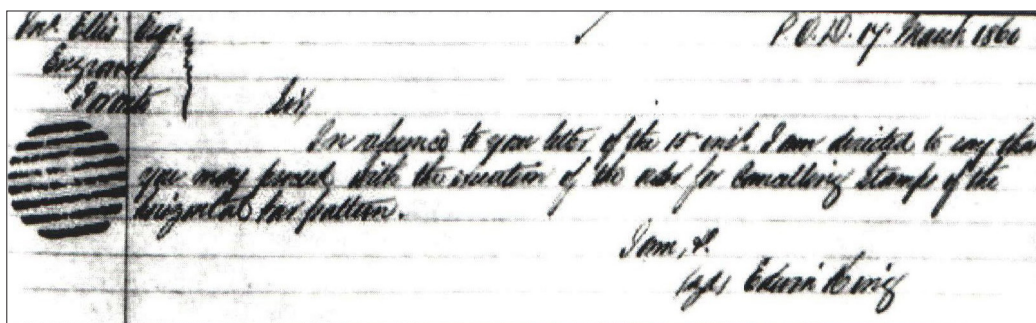 Jno. Ellis Esqr.
P.O.D. 17 March 1860
Engraver
Toronto
Sir,
In reference to your letter of the 15 inst. I am directed to say that
you may proceed with the execution of the order for Cancelling Stamps of the
horizontal bar pattern.
I am, &.
(sgd) Edwin King